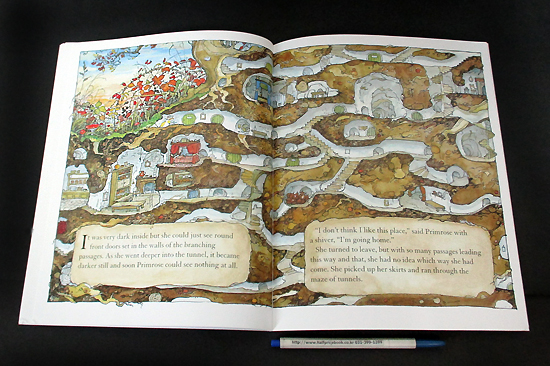 It was very dark inside but she could just see round
front doors set in the walls of the branching
passages. As she went deeper into the tunnel, it became
darker still and soon Primrose could see nothing at all.
"I don't think I like this place," said Primrose with
a shiver, "I'm going home."
She turned to leave, but with so many passages leading
this way and that, she had no idea which way she had
come. She picked up her skirts and ran through the
maze of tunnels.